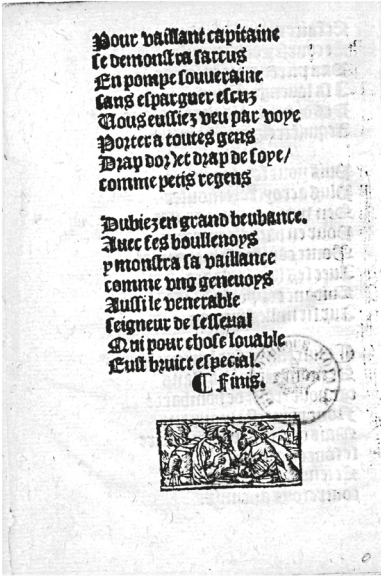 Pour vaillant capitaine
se demonstra sarcus
En pompe souveraine
sans esparguer escuz
Vous eussiez veu par voye
Porter a toutes gens
Drap dor et drap de soye/
comme petis regens
Dubiez en grand beubance.
Avec ses boullenoys
y monstra sa vaillance
comme ung genevoys
Aussi le venerable
seigneur de sesseual
Qui pour chose louable
Eust bruict especial.
¶ Finis.